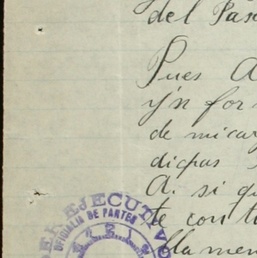 del Pas
Pues A
y'n for
de mi car
dichas
A. si qu
te con t
lla men
DER EJECUTIVO
OFICIALIA DE PARTES